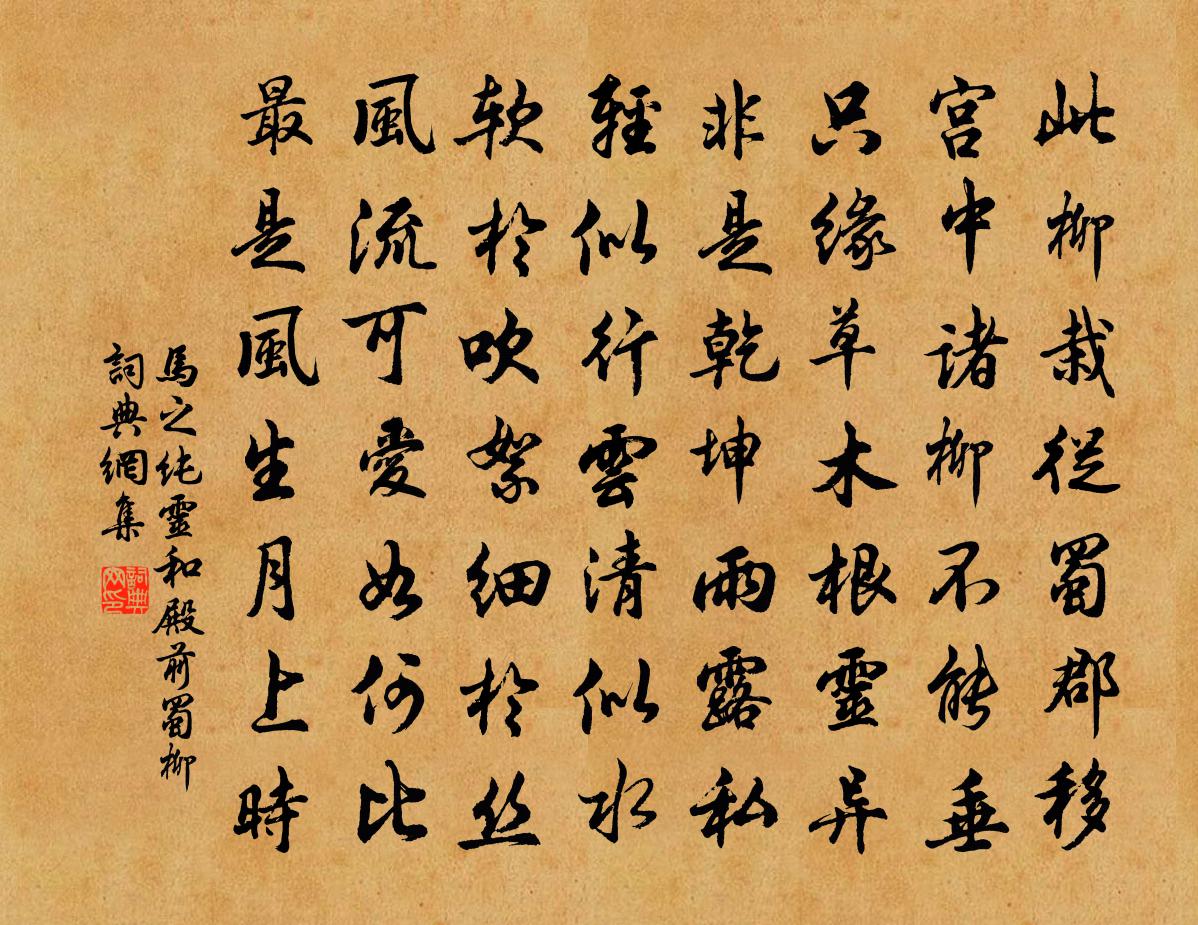 此柳栽從蜀郡移
宮中諸柳不能垂
只緣草木根靈异
非是乾坤雨露私
輕似行雲清似水
軟於吹絮細於丝
風流可愛如何比
最是風生月上時
馬之純靈和殿前蜀柳
詞典網集
詞典网印